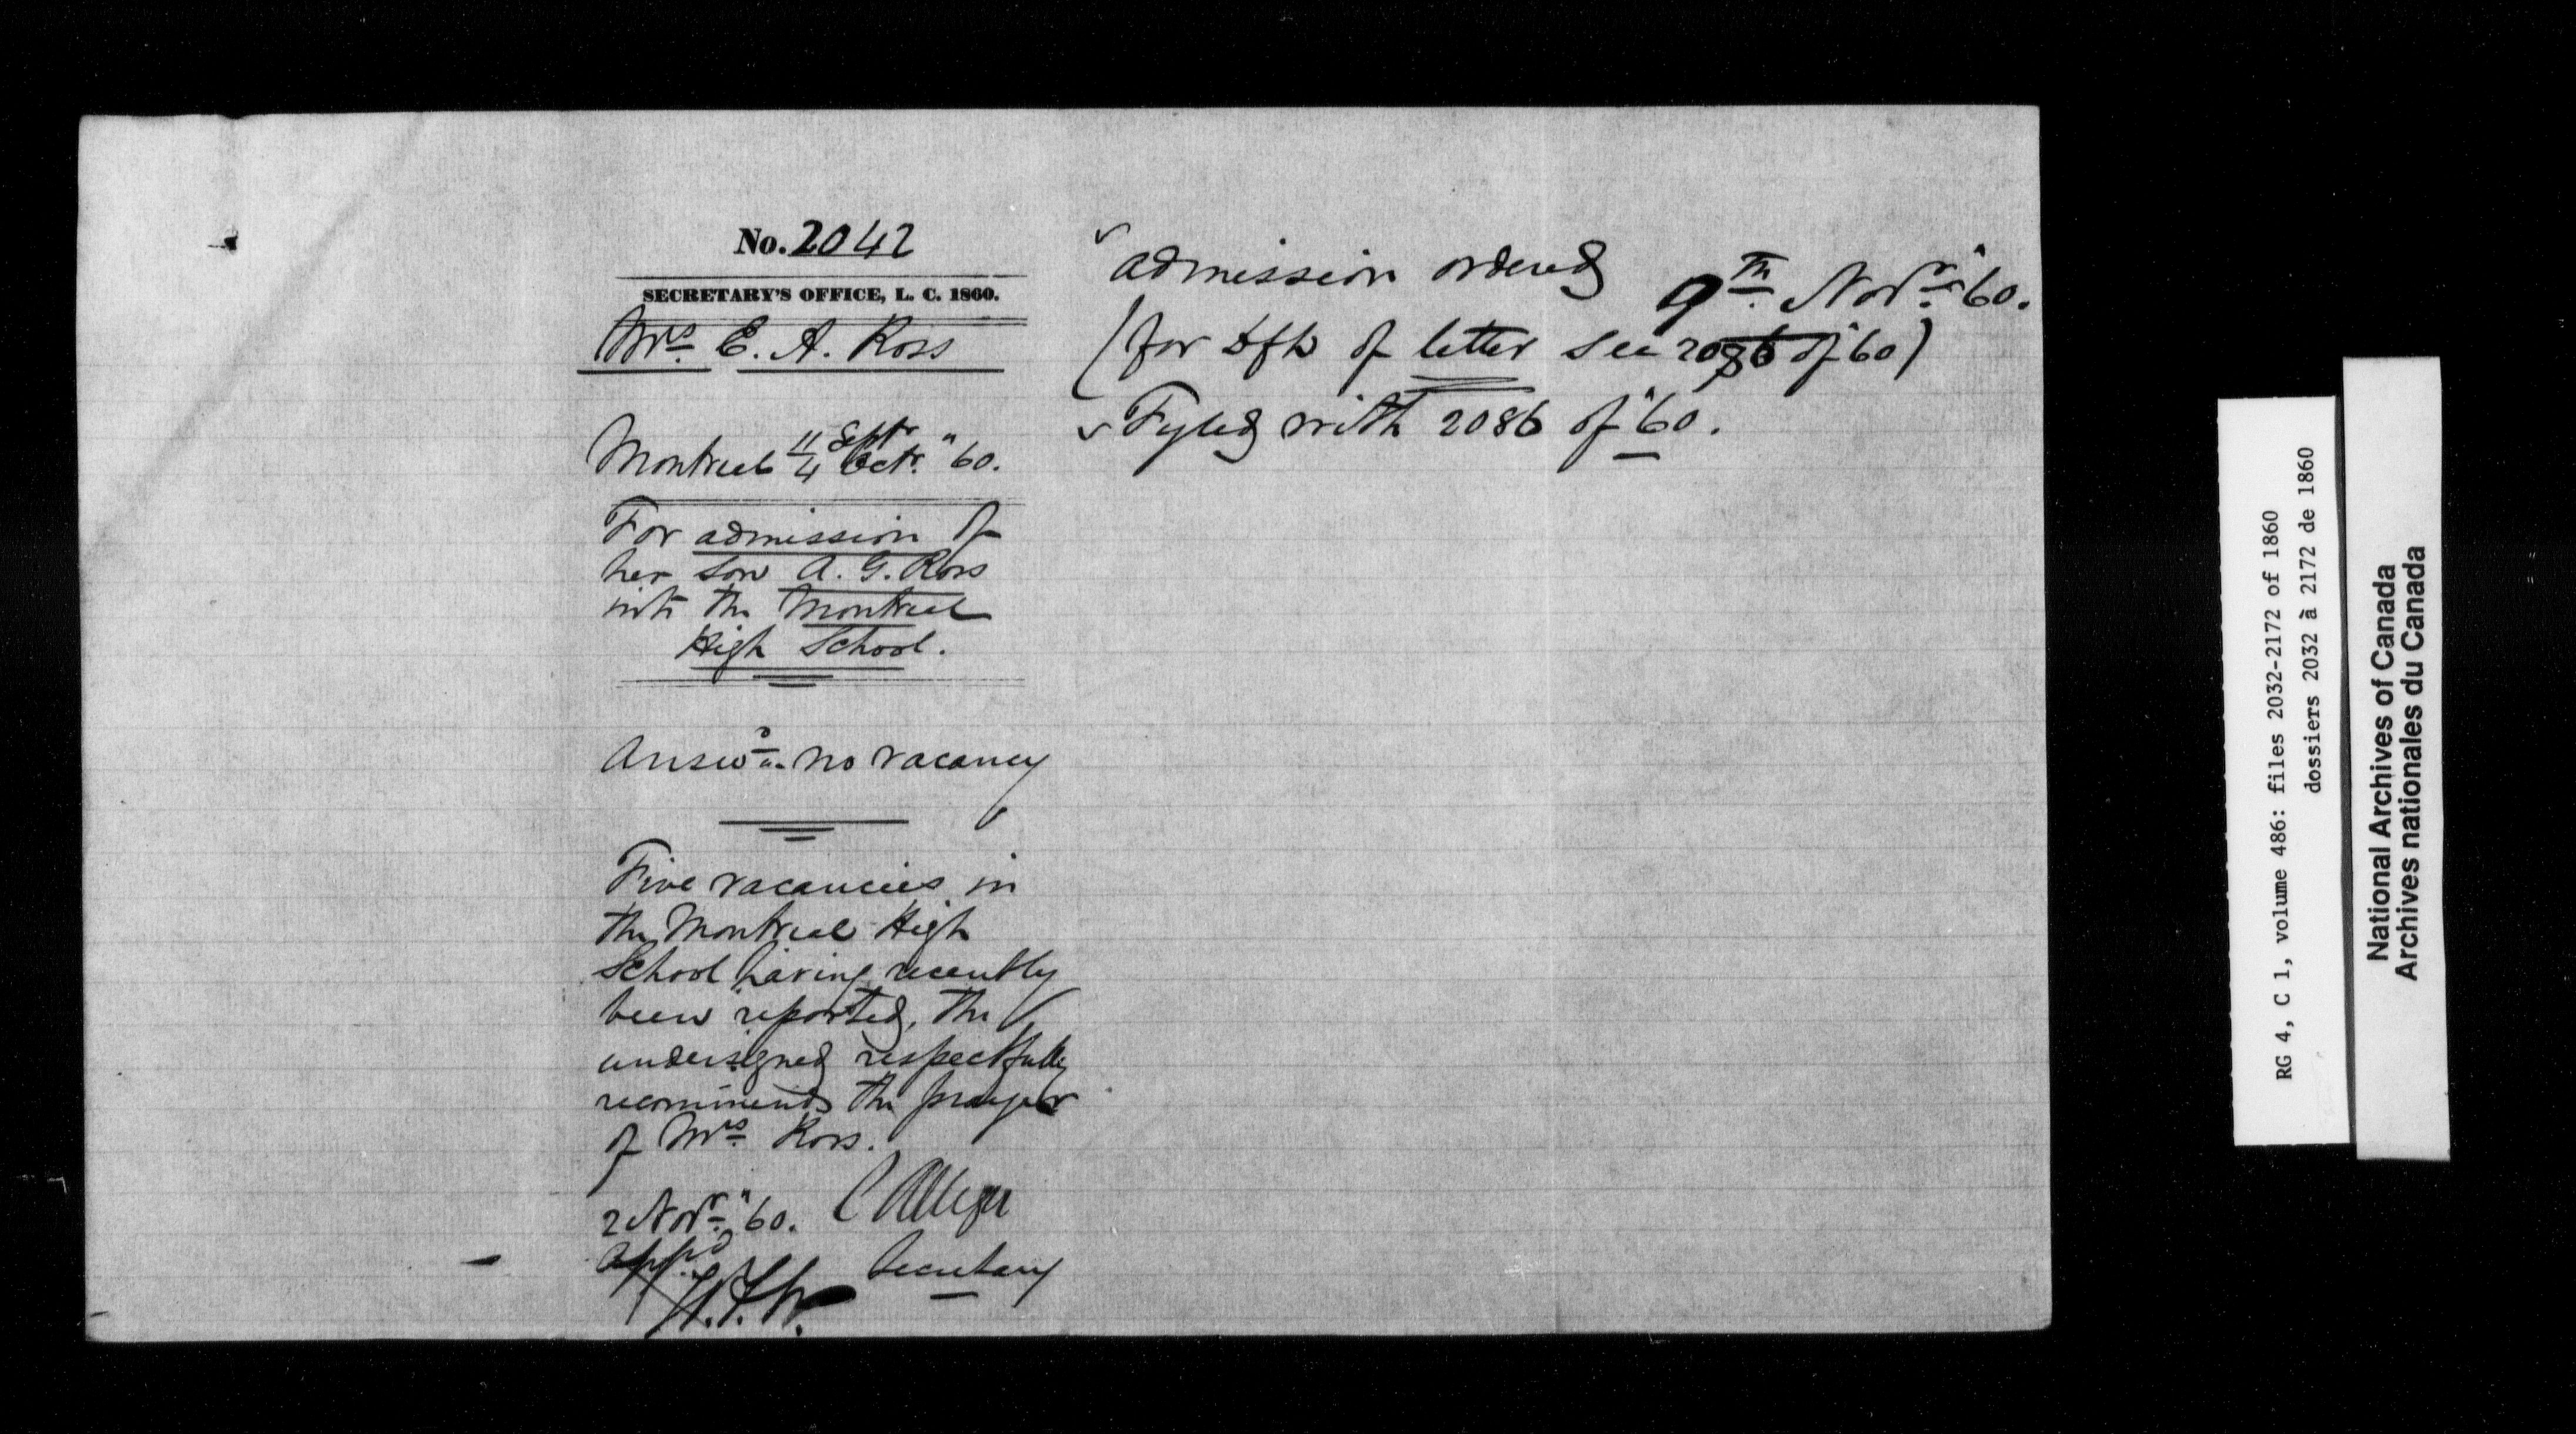 No. 2042
SECRETARY'S OFFICE, L. C. 1860.
Mrs. E. A. Ross
Montreal 11 Septr
4 Octr. "60.
For admission of
her son A. G. Ross
into the Montreal
High School.
Answd. no vacancy
Five vacancies in
the Montreal High
School having recently
been reported, the
undersigned respectfully
recommends the prayer
of Mrs. Ross.
2 Novr. "60. C Alleyn
Appd Secretary
admission ordered 9th. Novr. "60.
(for dft of letter see 2086 of "60)
Fyled with 2086 of "60.
RG 4, C 1, volume 486: files 2032-2172 of 1860
dossiers 2032 à 2172 de 1860
National Archives of Canada
Archives nationales du Canada